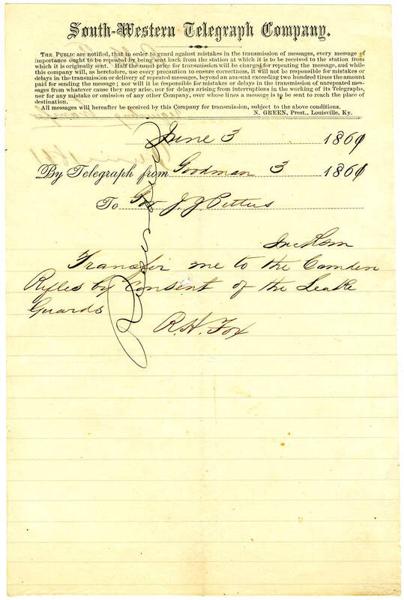 South-Western Telegraph Company.
The Public are notified, that in order to guard against mistakes in the transmission of messages, every message of
importance ought to be repeated by being sent back from the station at which it is to be received to the station from
which it is originally sent. Half the usual price for transmission will be charged for repeating the message, and while
this company will, as heretofore, use every precaution to ensure correctness, it will not be responsible for mistakes or
delays in the transmission or delivery of repeated messages, beyond an amount exceeding two hundred times the amount
paid for sending the message; nor will it be responsible for mistakes or delays in the transmission of unrepeated mes-
sages from whatever cause they may arise, nor for delays arising from interruptions in the working of its Telegraphs,
nor for any mistake or omission of any other Company, over whose lines a message is to be sent to reach the place of
destination.
All messages will hereafter be received by this Company for transmission, subject to the above conditions.
N. GREEN, Prest., Louisville, Ky.
June 3 1861
By Telegraph from Goodman 3 1861
To Gov J. J. Pettus
Transfer me to the Camden
Rifles by Consent of the Leake
Guards
R. H. Fox